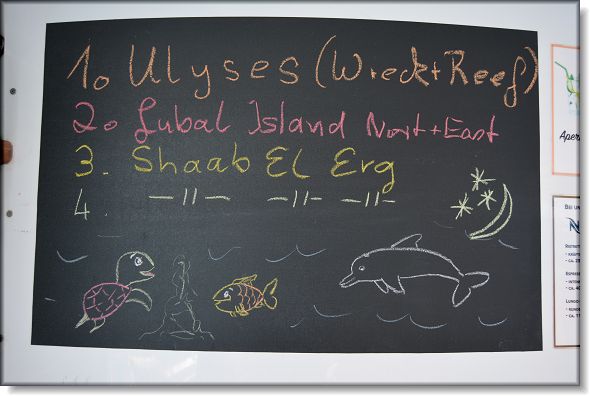 1. Ulyses (Wreck + Reef)
2. Gubal Island Nort + East
3. Shaab El Erg
4. —11— —11— —11—
Aper
BEI UN
N